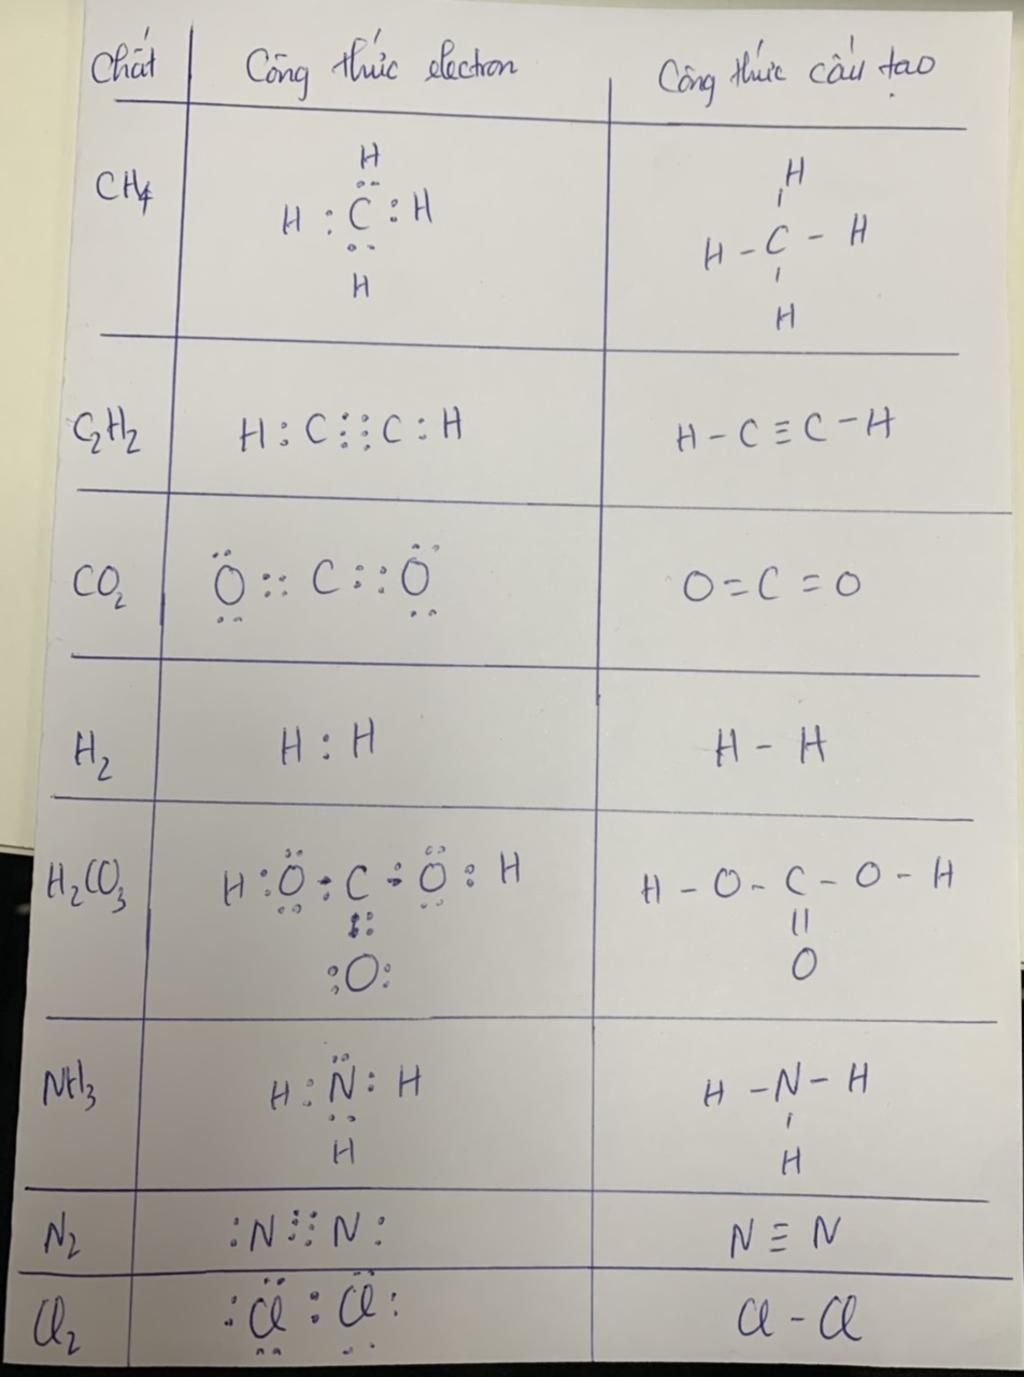 Chất Công thức electron Công thức cấu tạo
H H
CH4 H : C : H H - C - H
H H
C2H2 H : C ⋮⋮ C : H H - C ≡ C - H
CO2 O :: C :: O O = C = O
H2 H : H H - H
H2CO3 H : O : C : O : H H - O - C - O - H
:: ||
: O : O
NH3 H : N : H H - N - H
H H
N2 : N ⋮⋮ N : N ≡ N
Cl2 : Cl : Cl : Cl - Cl